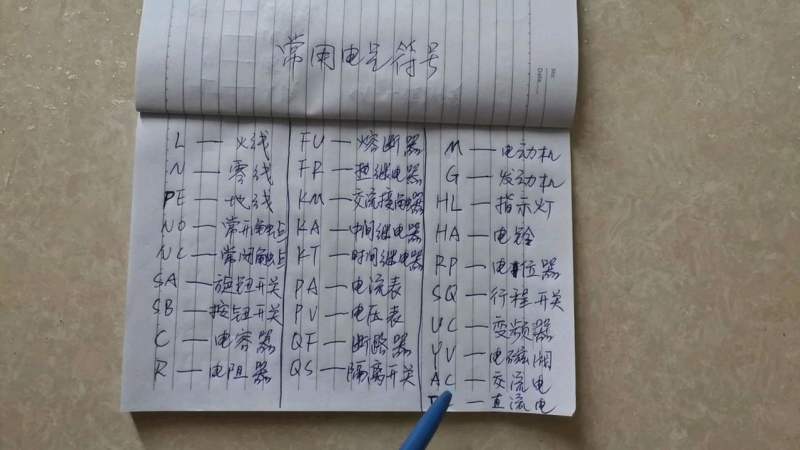 常用电气符号
L — 火线
N — 零线
PE — 地线
NO — 常开触点
NC — 常闭触点
SA — 旋钮开关
SB — 按钮开关
C — 电容器
R — 电阻器
FU — 熔断器
FR — 热继电器
KM — 交流接触器
KA — 中间继电器
KT — 时间继电器
PA — 电流表
PV — 电压表
QF — 断路器
QS — 隔离开关
M — 电动机
G — 发动机
HL — 指示灯
HA — 电铃
RP — 电位器
SQ — 行程开关
UC — 变频器
YV — 电磁阀
AC — 交流电
— 直流电